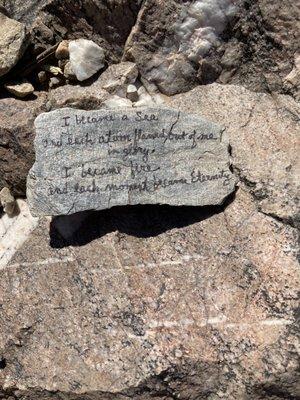 I became a Sea
and each atom flamed out of me
in glory.
I became fire
and each moment became Eternity